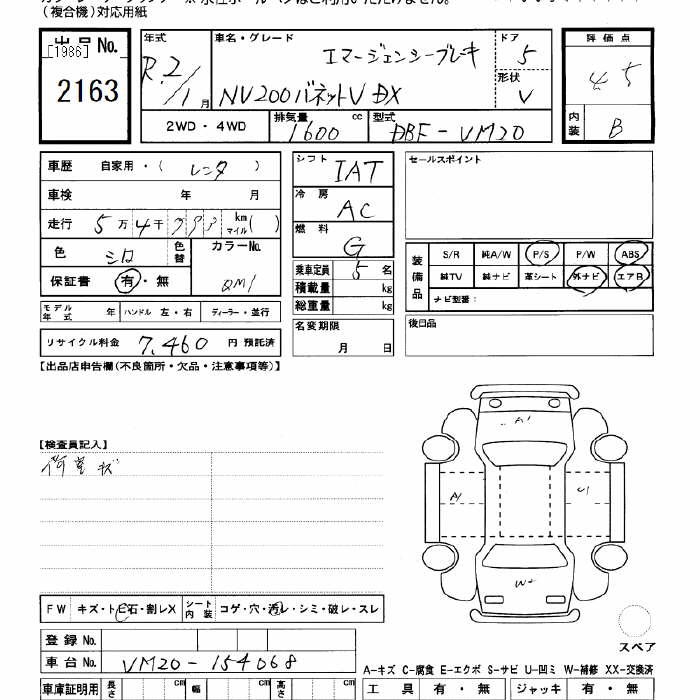 (複合機)対応用紙
出品 No.
[1986]
2163
年式 R.2/1 月
車名・グレード エマージェンシーブレーキ
NV200バネットV DX
ドア 5
形状 V
評価点 4.5
内装 B
2WD・4WD
排気量 1600 cc
型式 DBF-VM20
車歴 自家用・( レンタ )
車検 年 月
走行 5万4千??? km マイル( )
色 シロ 色替 カラーNo. QM1
保証書 有・無
モデル年式 年 ハンドル 左・右 ディーラー・並行
リサイクル料金 7,460 円 預託済
シフト IAT
冷房 AC
燃料 G
乗車定員 5 名
積載量 kg
総重量 kg
名変期限
月 日
セールスポイント
装備品 S/R 純A/W P/S P/W ABS
純TV 純ナビ 革シート 外ナビ エアB
ナビ型番:
後日品
【出品店申告欄(不良箇所・欠品・注意事項等)】
【検査員記入】
荷室キズ
A1
A1
U1
W2
FW キズ・トビ石・割レX シート内装 コゲ・穴・汚レ・シミ・破レ・スレ
スペア
登録 No.
車台 No. VM20-154068
A-キズ C-腐食 E-エクボ S-サビ U-凹ミ W-補修 XX-交換済
車庫証明用 長さ cm 幅 cm 高さ cm
工具 有・無 ジャッキ 有・無